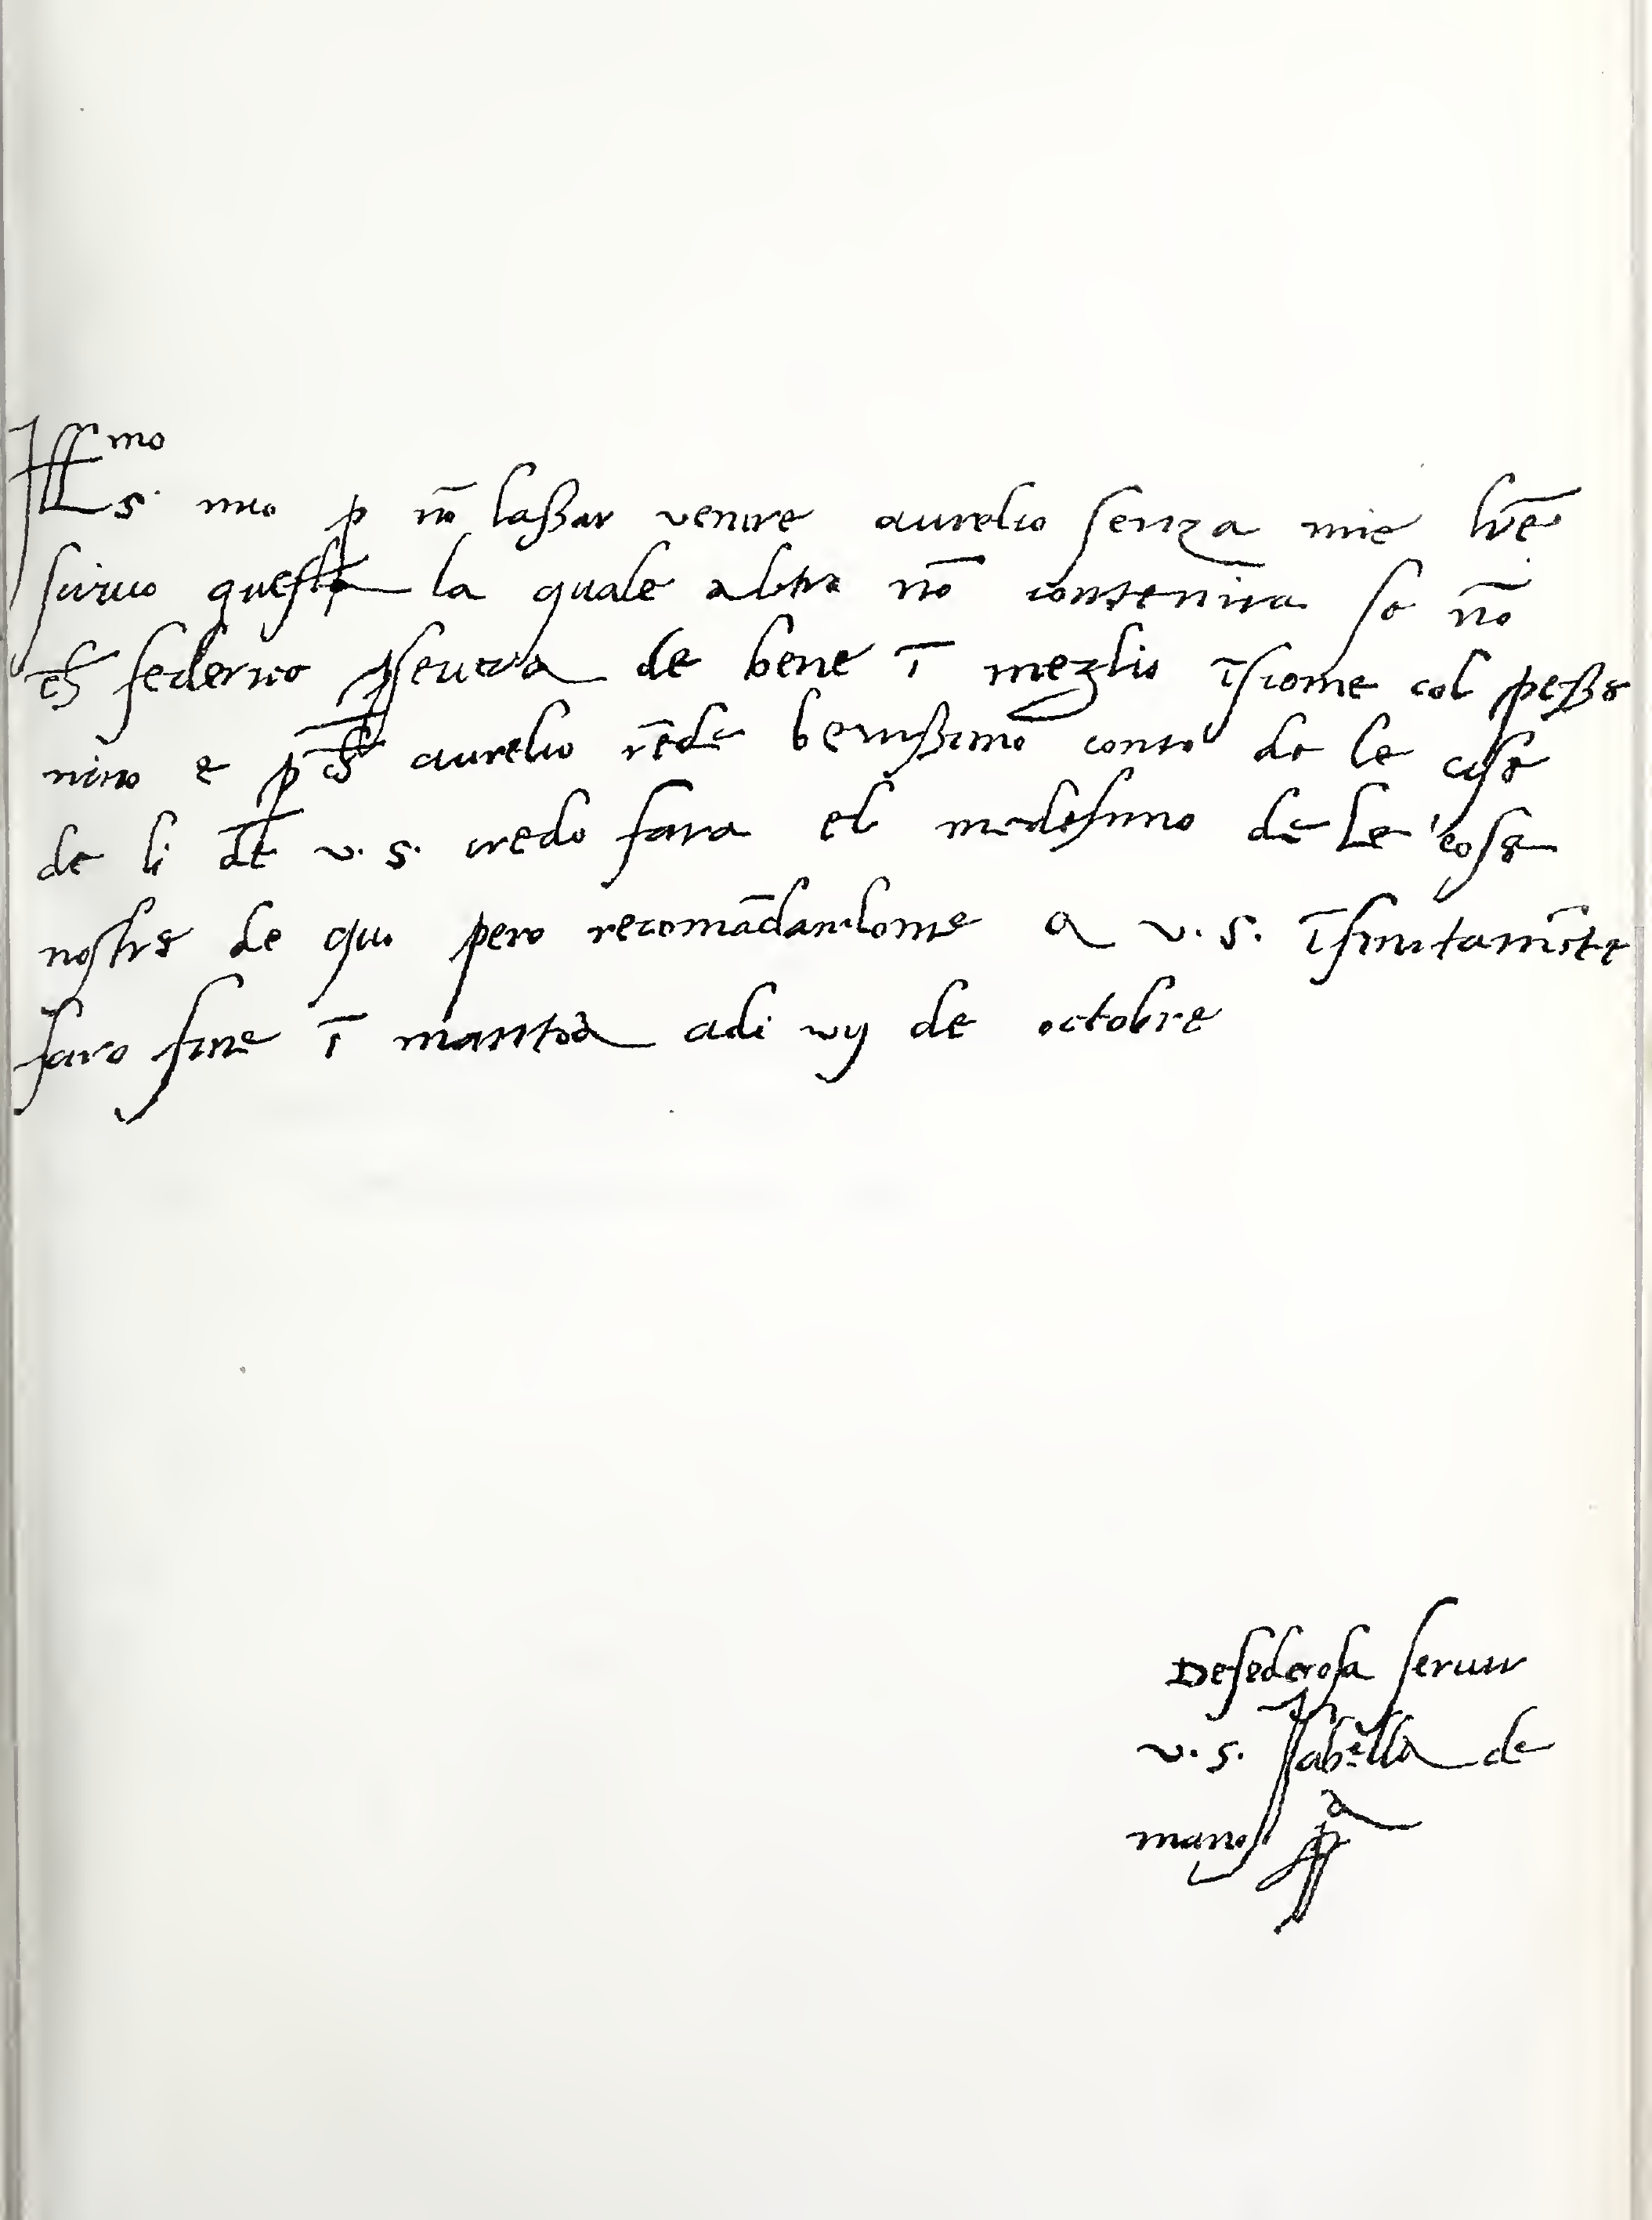 Ill^mo
S. mio p nō laßar venire aurelio senza mie lr̄e
scrivo questa la quale altro nō contenira se nō
ch̄ federico p̱severa de bene ī meglio īsieme col peße
nino e p ch̄ aurelio rēde benißimo conto de le cose
de li de v. s. credo fara el medesimo de le cose
nostre de qui pero recomādandome a v. s. īfinitamēte
faro fine ī mantoa adi vij de octobre
Desederosa servir
v. s. Isabella de
mano pp^a